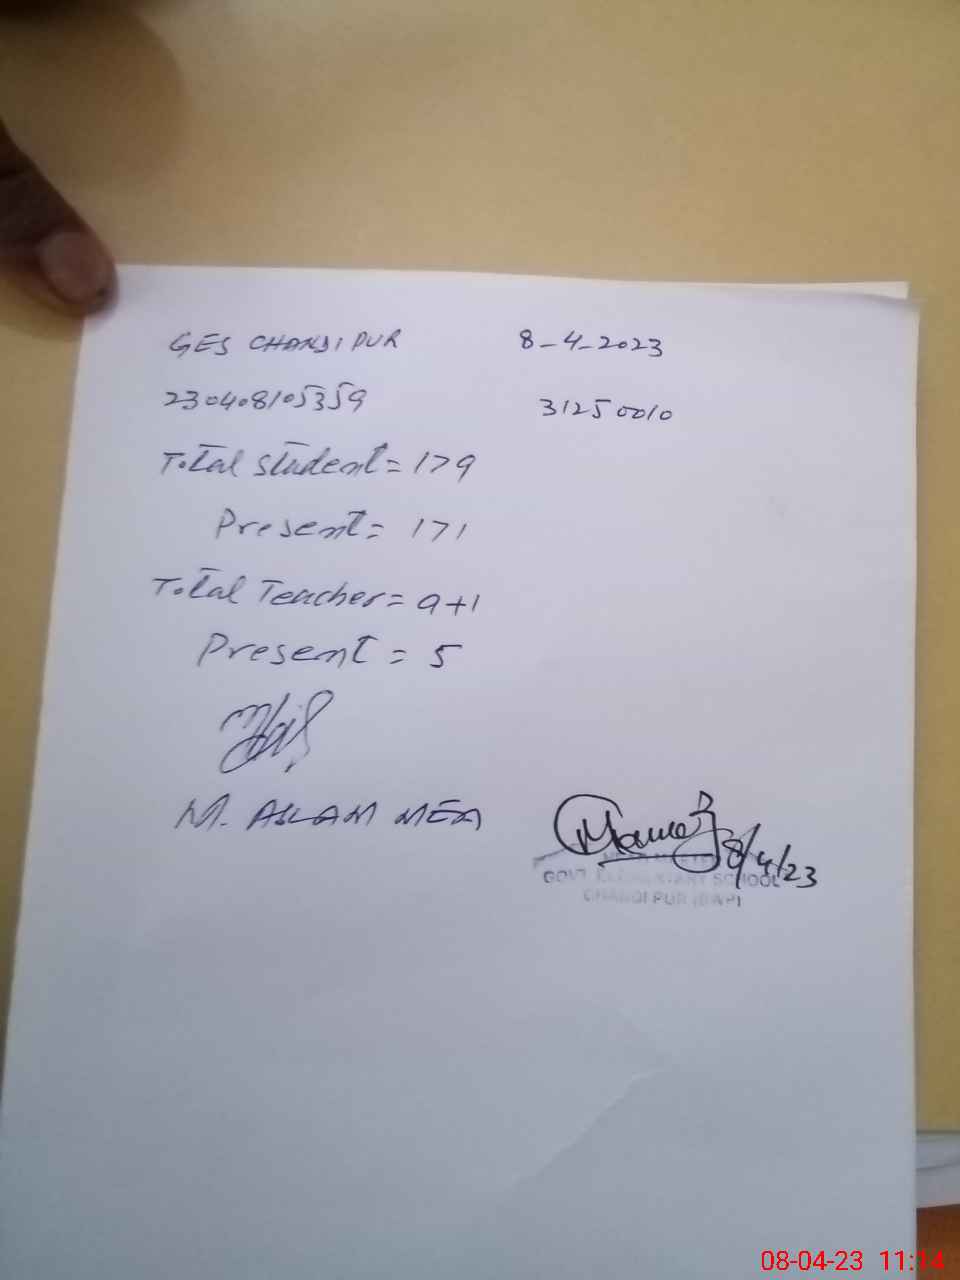 GES CHANDIPUR 8-4-2023
230408105359 31250010
Total Student = 179
Present = 171
Total Teacher = 9+1
Present = 5
M. ASLAM MEA
8/4/23
GOVT. ELEMENTARY SCHOOL
CHANDIPUR (BWP)
08-04-23 11:14